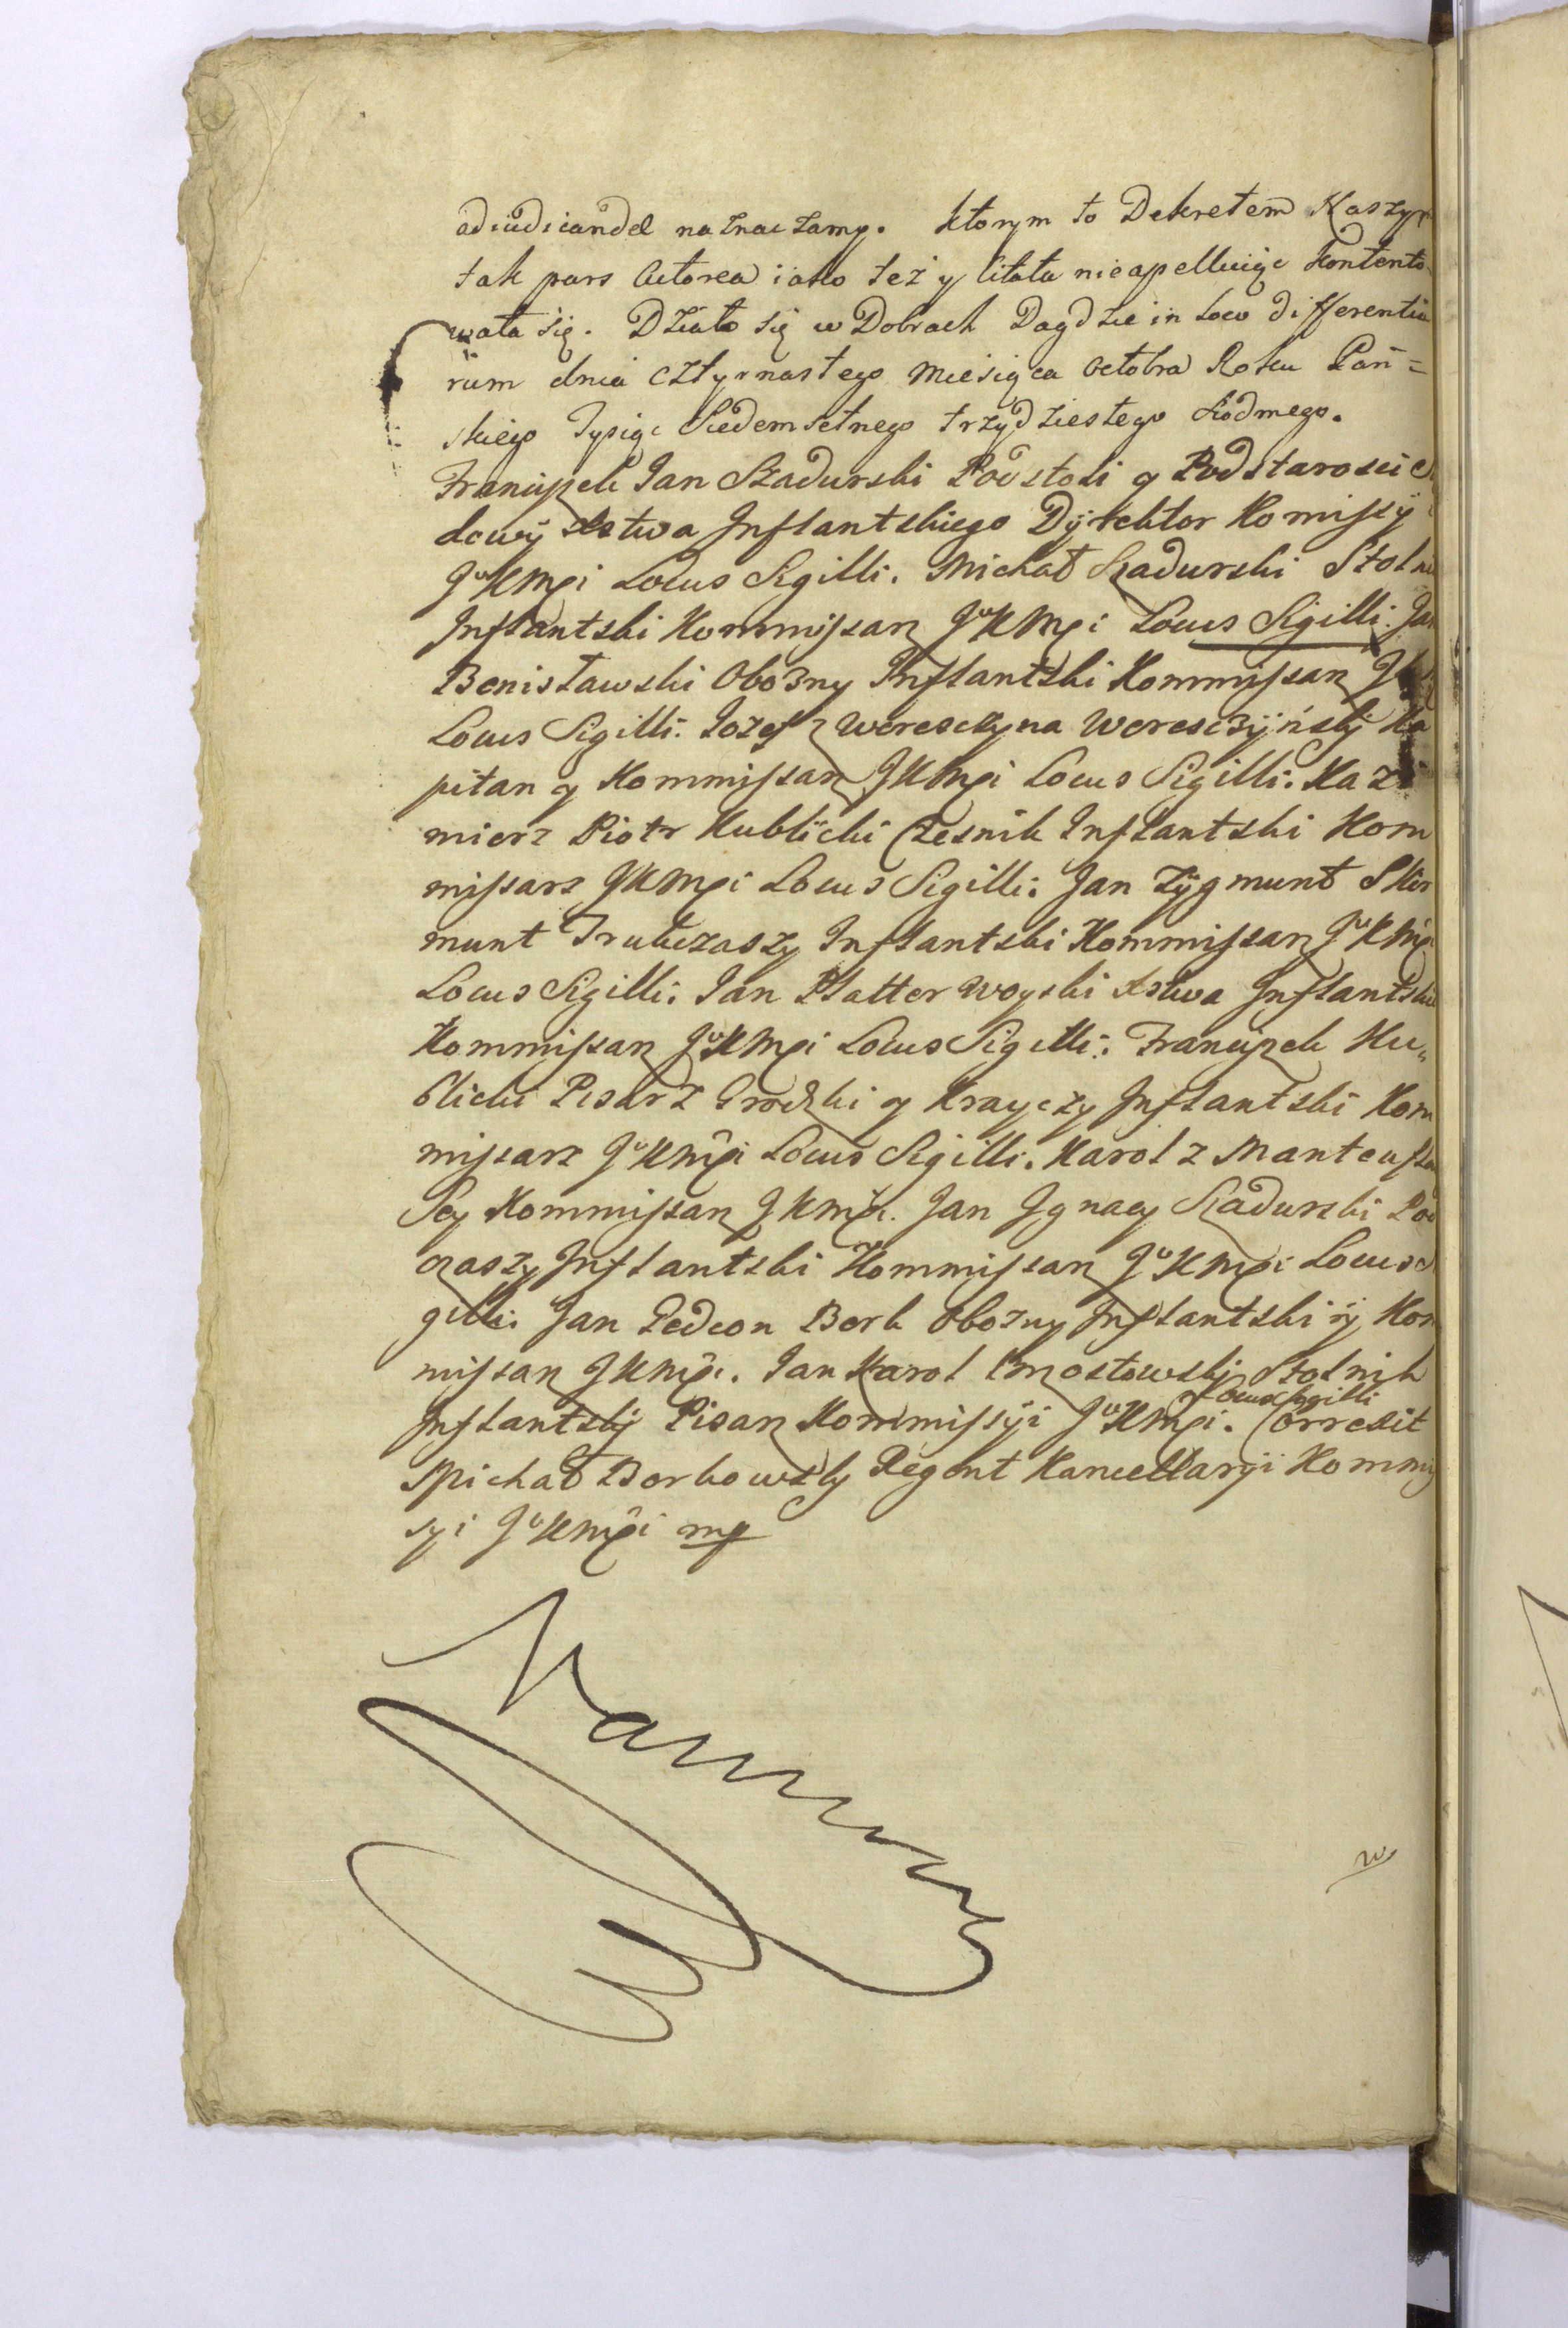 adiudicandel naznaczamy. ktorym to Dekretem Naszym
tak pars Actorea iako też y Citata nieapelluiąc kontento
wała się. Działo się w Dobrach Dagdzie in Loco differentia
rum dnia cztyrnastego Miesiąca Octobra Roku Pań=
skiego Tysiąc Siedemsetnego trzydziestego Siodmego.
Franciszek Jan Szadurski Podstoli y Podstarosci
dowy Xstwa Inflantskiego Dyrektor Komissÿ
JoKMći Locus Sigilli. Michał Szadurski Stolni
Inflantski Kommissarz JoKMći Locus Sigilli. Jan
Benisławski Obozny Inflantski Kommissarz
Locus Sigilli. Jozef z Wereszczyna Wereszczÿnskÿ Ka
pitan y Kommissarz JKMći Locus Sigilli. Kazi
mierz Piotr Kublicki Czesnik Inflantski Kom
missarz JKMći Locus Sigilli. Jan Zÿgmunt Skir
munt Trukczaszy Inflantski Kommissarz JoKMći
Locus Sigilli. Jan Platter Woyski Xstwa Inflantski
Kommissarz JoKMći Locus Sigilli. Franciszek Ku„
blicki Pisarz Grodzki y Krayczy Inflantski Kom
missarz JoKMći Locus Sigilli. Karol z Manteufla
Sey Kommissarz JKMći. Jan Jgnacy Szadurski Pod
czaszy Inflantski Kommissarz JoKMći Locus Si
gilli. Jan Gedeon Berk Obozny Inflantski ÿ Kom
missarz JKMći. Jan Karol Chmostowski Stolnik
Locus Sigilli
Inflantskÿ Pisarz Kommissÿi JoKMći. Correxit
Michał Borkowskÿ Regent Kancellaryi Kommis
syi JoKMći mp